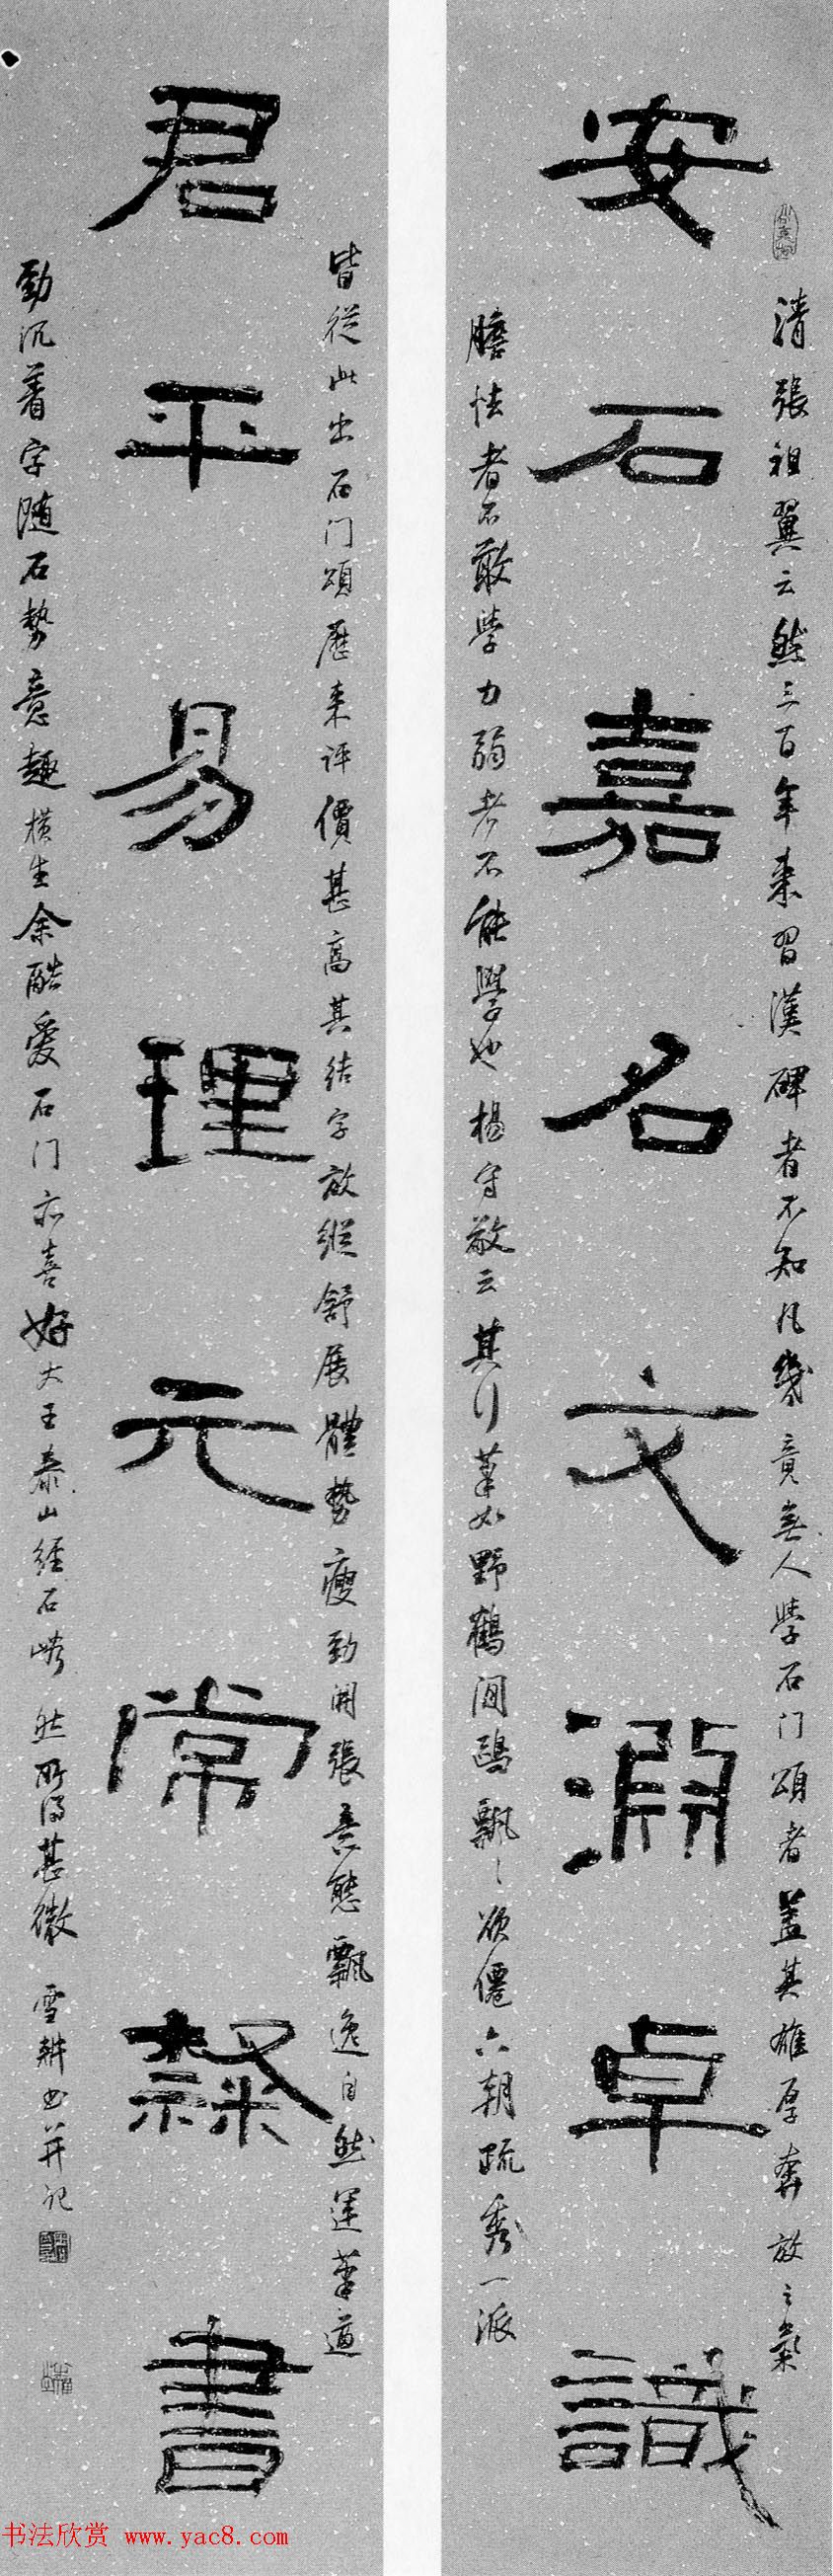 安石嘉名文淵卓識
清張祖翼云然三百年來習漢碑者不知凡幾竟無人學石门頌者盖其雄厚奔放之氣
膽怯者不敢學力弱者不能學也楊守敬云其行筆如野鶴閒鷗飄〻欲僊六朝疏秀一派
君平易理元常隸書
皆從此出石门頌歷来評價甚高其结字放縱舒展體勢瘦勁開張意態飄逸自然運筆遒
勁沉着字随石勢意趣横生余酷爱石门亦喜好大王泰山經石峪然所得甚微 雪耕书并记
书法欣赏 www.yac8.com